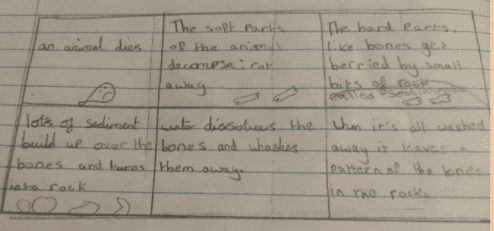 an animal dies
The soft Parts
of the animal
decompose: rot
away
The hard Parts,
like bones get
berried by small
bits of rock
called sediment
lots of sediment
build up over the
bones and turns
into rock
water dissolves the
bones and whashes
them away.
When it's all washed
away it leaves a
pattern of the bones
in the rocks